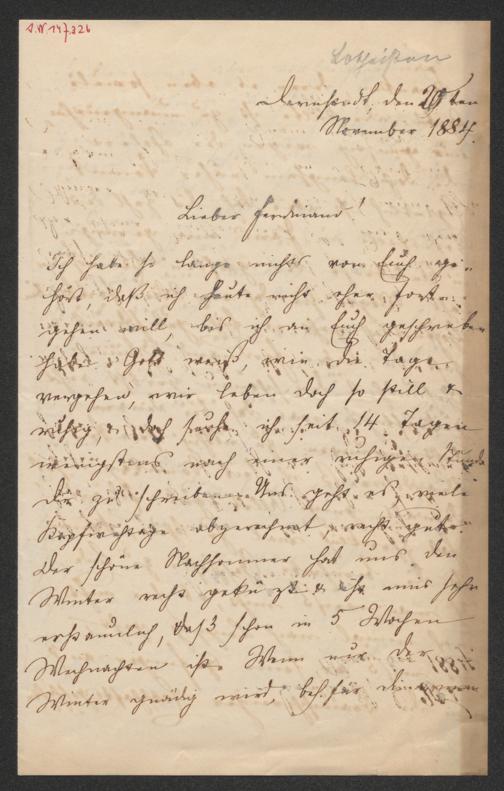 J.N. 147.326
Lotheissen
Darmstadt, den 20ten
November 1884.
Lieber Ferdinand!
Ich habe so lange nichts von Euch ge-
hört, daß ich heute nicht eher fort-
gehen will, bis ich an Euch geschrieben
habe. Gott weiß, wie die Tage
vergehen, wir leben doch so still &
ruhig, & doch suche ich seit 14 Tagen
wenigstens nach einer ruhigen Stunde
Dir zu schreiben. Uns geht es, viele
Kopfwehtage abgerechnet, recht gut.
Der schöne Nachsommer hat uns den
Winter recht gekürzt & ist mir sehr
erstaunlich, daß schon in 5 Wochen
Weihnachten ist. Wenn nur der
Winter gnädig wird, bes. für